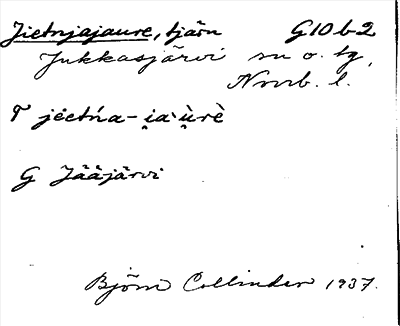 Jietnjajaure, tjärn G10b2
Jukkasjärvi sn o. tg,
Norrb. l.
T jĕetńa-i̯a`u̯rè
G Jääjärvi
Björn Collinder 1937.